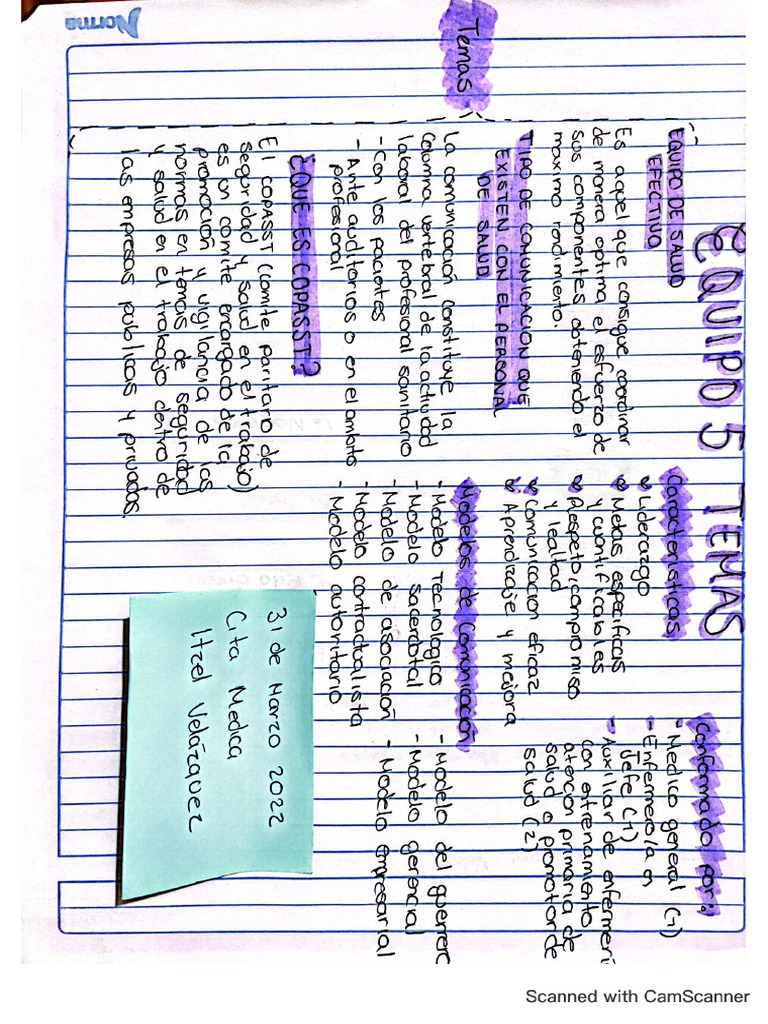 Norma
EQUIPO 5 TEMAS
Temas
EQUIPO DE SALUD
EFECTIVO
Es aquel que consigue coordinar
de manera optima el esfuerzo de
sus componentes obteniendo el
maximo rendimiento.
Caracteristicas
Liderazgo
Metas especificas
y cuantificables
Respeto, compromiso
y lealtad
Comunicacion eficaz
Aprendizaje y mejora
Conformado por:
- Medico general (1)
- Enfermero/a en
Jefe (1)
- Auxiliar de enfermeri
con entrenamiento
atención primaria de
salud o promotor de
salud (2)
TIPO DE COMUNICACION QUE
EXISTEN CON EL PERSONAL
DE SALUD
La comunicación constituye la
columna vertebral de la actividad
laboral del profesional sanitario
- Con los pacientes
- Ante auditorios o en el ambito
profesional
Modelos de comunicación
- Modelo Tecnologico
- Modelo sacerdotal
- Modelo de asociación
- Modelo contractualista
- Modelo autoritario
- Modelo del guerrero
- Modelo gerencial
- Modelo empresarial
¿QUE ES COPASST?
El COPASST (comite paritaro de
seguridad y salud en el trabajo)
es un comite encargado de la
promoción y vigilancia de las
normas en temas de seguridad
y salud en el trabajo dentro de
las empresas publicas y privadas.
31 de Marzo 2022
Cita Medica
Itzel Velázquez
Scanned with CamScanner